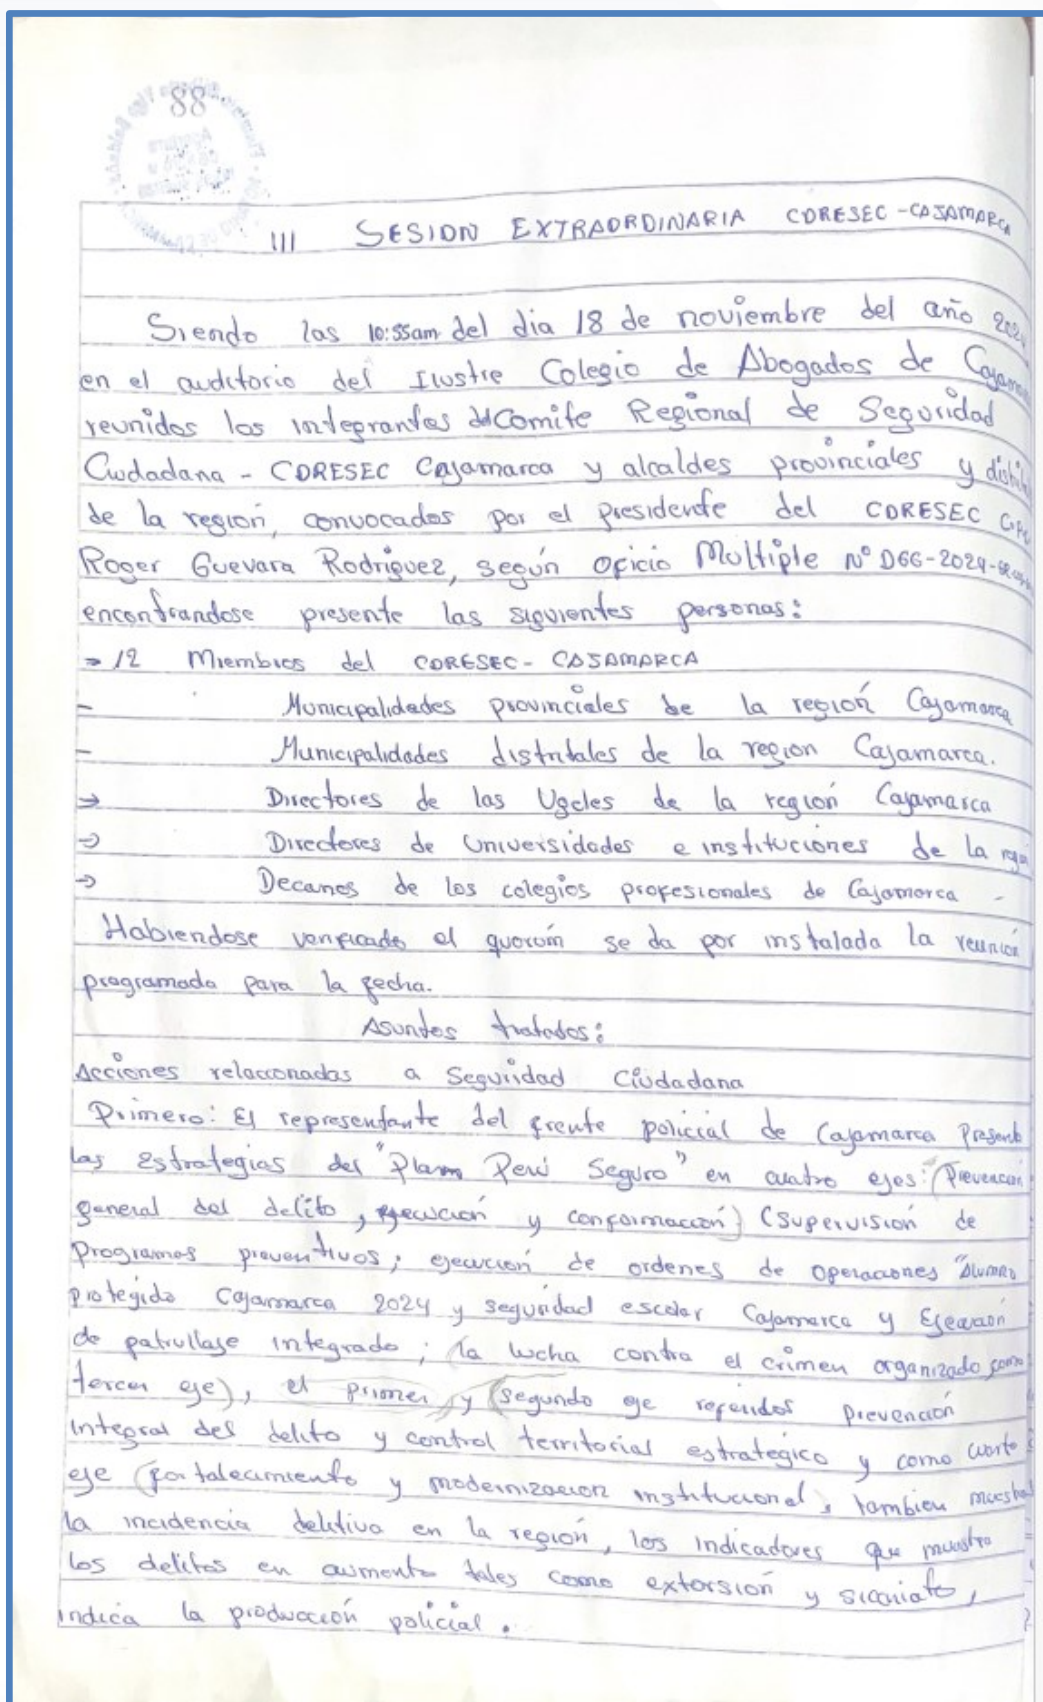 88
III SESION EXTRAORDINARIA CORESEC-CAJAMARCA
Siendo las 10:55am del dia 18 de noviembre del año 2024
en el auditorio del Ilustre Colegio de Abogados de Cajamarca
reunidos los integrantes del Comite Regional de Seguridad
Ciudadana - CORESEC Cajamarca y alcaldes provinciales y distritales
de la región, convocados por el presidente del CORESEC
Roger Guevara Rodriguez, según oficio Multiple N° D66-2024-
encontrandose presente las siguientes personas:
→ 12 Miembros del CORESEC- CAJAMARCA
- Municipalidades provinciales de la región Cajamarca
- Municipalidades distritales de la region Cajamarca.
→ Directores de las Ugeles de la región Cajamarca
→ Directores de Universidades e instituciones de la
→ Decanos de los colegios profesionales de Cajamarca -
Habiendose verificado el quorúm se da por instalada la reunión
programada para la fecha.
Asuntos tratados:
Acciones relaccionadas a Seguridad Ciudadana
Primero: El representante del frente policial de Cajamarca Presento
las Estrategias del "Plan Perú Seguro" en cuatro ejes: (Prevención
general del delito, ejecución y conformacción) (supervisión de
Programas preventivos; ejecución de ordenes de operacciones "Alumno
protegido Cajamarca 2024 y seguridad escolar Cajamarca y Ejecución
de patrullaje integrado; (la lucha contra el crimen organizado, como
tercer eje), el primer y (segundo eje referidos prevención
integral del delito y control territorial estrategico y como cuarto
eje (fortalecimiento y modernizacion institucional, tambien muestra
la incidencia delitiva en la región, los indicadores que muestra
los delitos en aumento tales como extorsión y sicariato,
indica la producción policial.